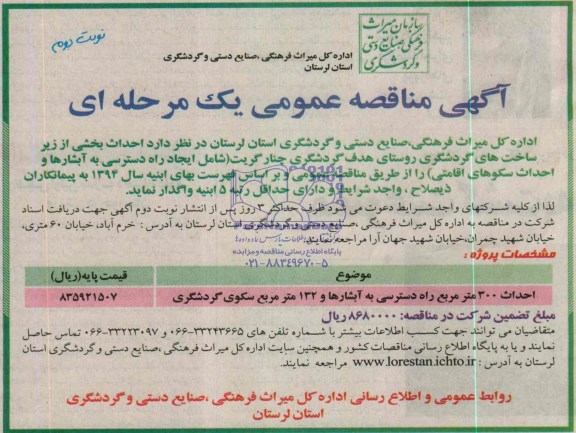 سازمان میراث فرهنگی صنایع دستی و گردشگری
نوبت دوم
اداره کل میراث فرهنگی ،صنایع دستی و گردشگری
استان لرستان
آگهی مناقصه عمومی یک مرحله ای
اداره کل میراث فرهنگی،صنایع دستی و گردشگری استان لرستان در نظر دارد احداث بخشی از زیر
ساخت های گردشگری روستای هدف گردشگری چنار گریت(شامل ایجاد راه دسترسی به آبشارها و
احداث سکوهای اقامتی) را از طریق مناقصه عمومی و بر اساس فهرست بهای ابنیه سال ۱۳۹۴ به پیمانکاران
ذیصلاح ، واجد شرایط و دارای حداقل رتبه ۵ ابنیه واگذار نماید.
لذا از کلیه شرکتهای واجد شرایط دعوت می شود ظرف حداکثر ۳ روز پس از انتشار نوبت دوم آگهی جهت دریافت اسناد
شرکت در مناقصه به اداره کل میراث فرهنگی ،صنایع دستی و گردشگری استان لرستان به آدرس : خرم آباد، خیابان ۶۰ متری،
خیابان شهید چمران،خیابان شهید جهان آرا مراجعه نمایند.
پایگاه اطلاع رسانی مناقصه و مزایده
۰۲۱-۸۸۳۴۹۶۷۰-۵
مشخصات پروژه :
موضوع قیمت پایه(ریال)
احداث ۳۰۰ متر مربع راه دسترسی به آبشارها و ۱۳۲ متر مربع سکوی گردشگری ۸۳۵۹۲۱۵۰۷
مبلغ تضمین شرکت در مناقصه: ۸۶۸۰۰۰۰ ریال
متقاضیان می توانند جهت کسب اطلاعات بیشتر با شماره تلفن های ۳۳۲۴۳۶۶۵-۰۶۶ و ۳۳۲۲۳۰۹۷-۰۶۶ تماس حاصل
نمایند و یا به پایگاه اطلاع رسانی مناقصات کشور و همچنین سایت اداره کل میراث فرهنگی ،صنایع دستی و گردشگری استان
لرستان به آدرس : www.lorestan.ichto.ir مراجعه نمایند.
روابط عمومی و اطلاع رسانی اداره کل میراث فرهنگی ،صنایع دستی و گردشگری
استان لرستان